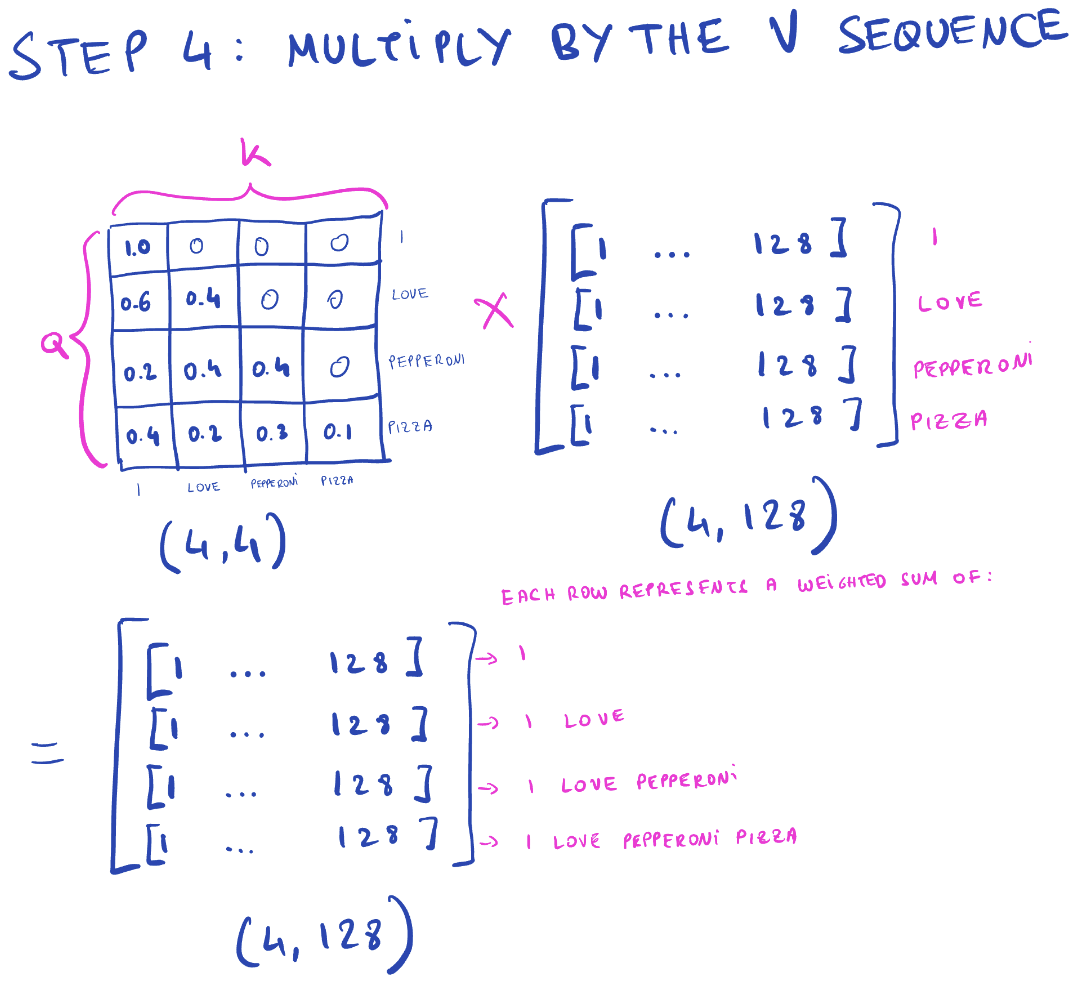 STEP 4: MULTIPLY BY THE V SEQUENCE
K
Q
1.0 0 0 0 I
0.6 0.4 0 0 LOVE
0.2 0.4 0.4 0 PEPPERONI
0.4 0.2 0.3 0.1 PIZZA
I LOVE PEPPERONI PIZZA
(4,4)
X
[1 ... 128] I
[1 ... 128] LOVE
[1 ... 128] PEPPERONI
[1 ... 128] PIZZA
(4, 128)
EACH ROW REPRESENTS A WEIGHTED SUM OF:
=
[1 ... 128] → I
[1 ... 128] → I LOVE
[1 ... 128] → I LOVE PEPPERONI
[1 ... 128] → I LOVE PEPPERONI PIZZA
(4, 128)